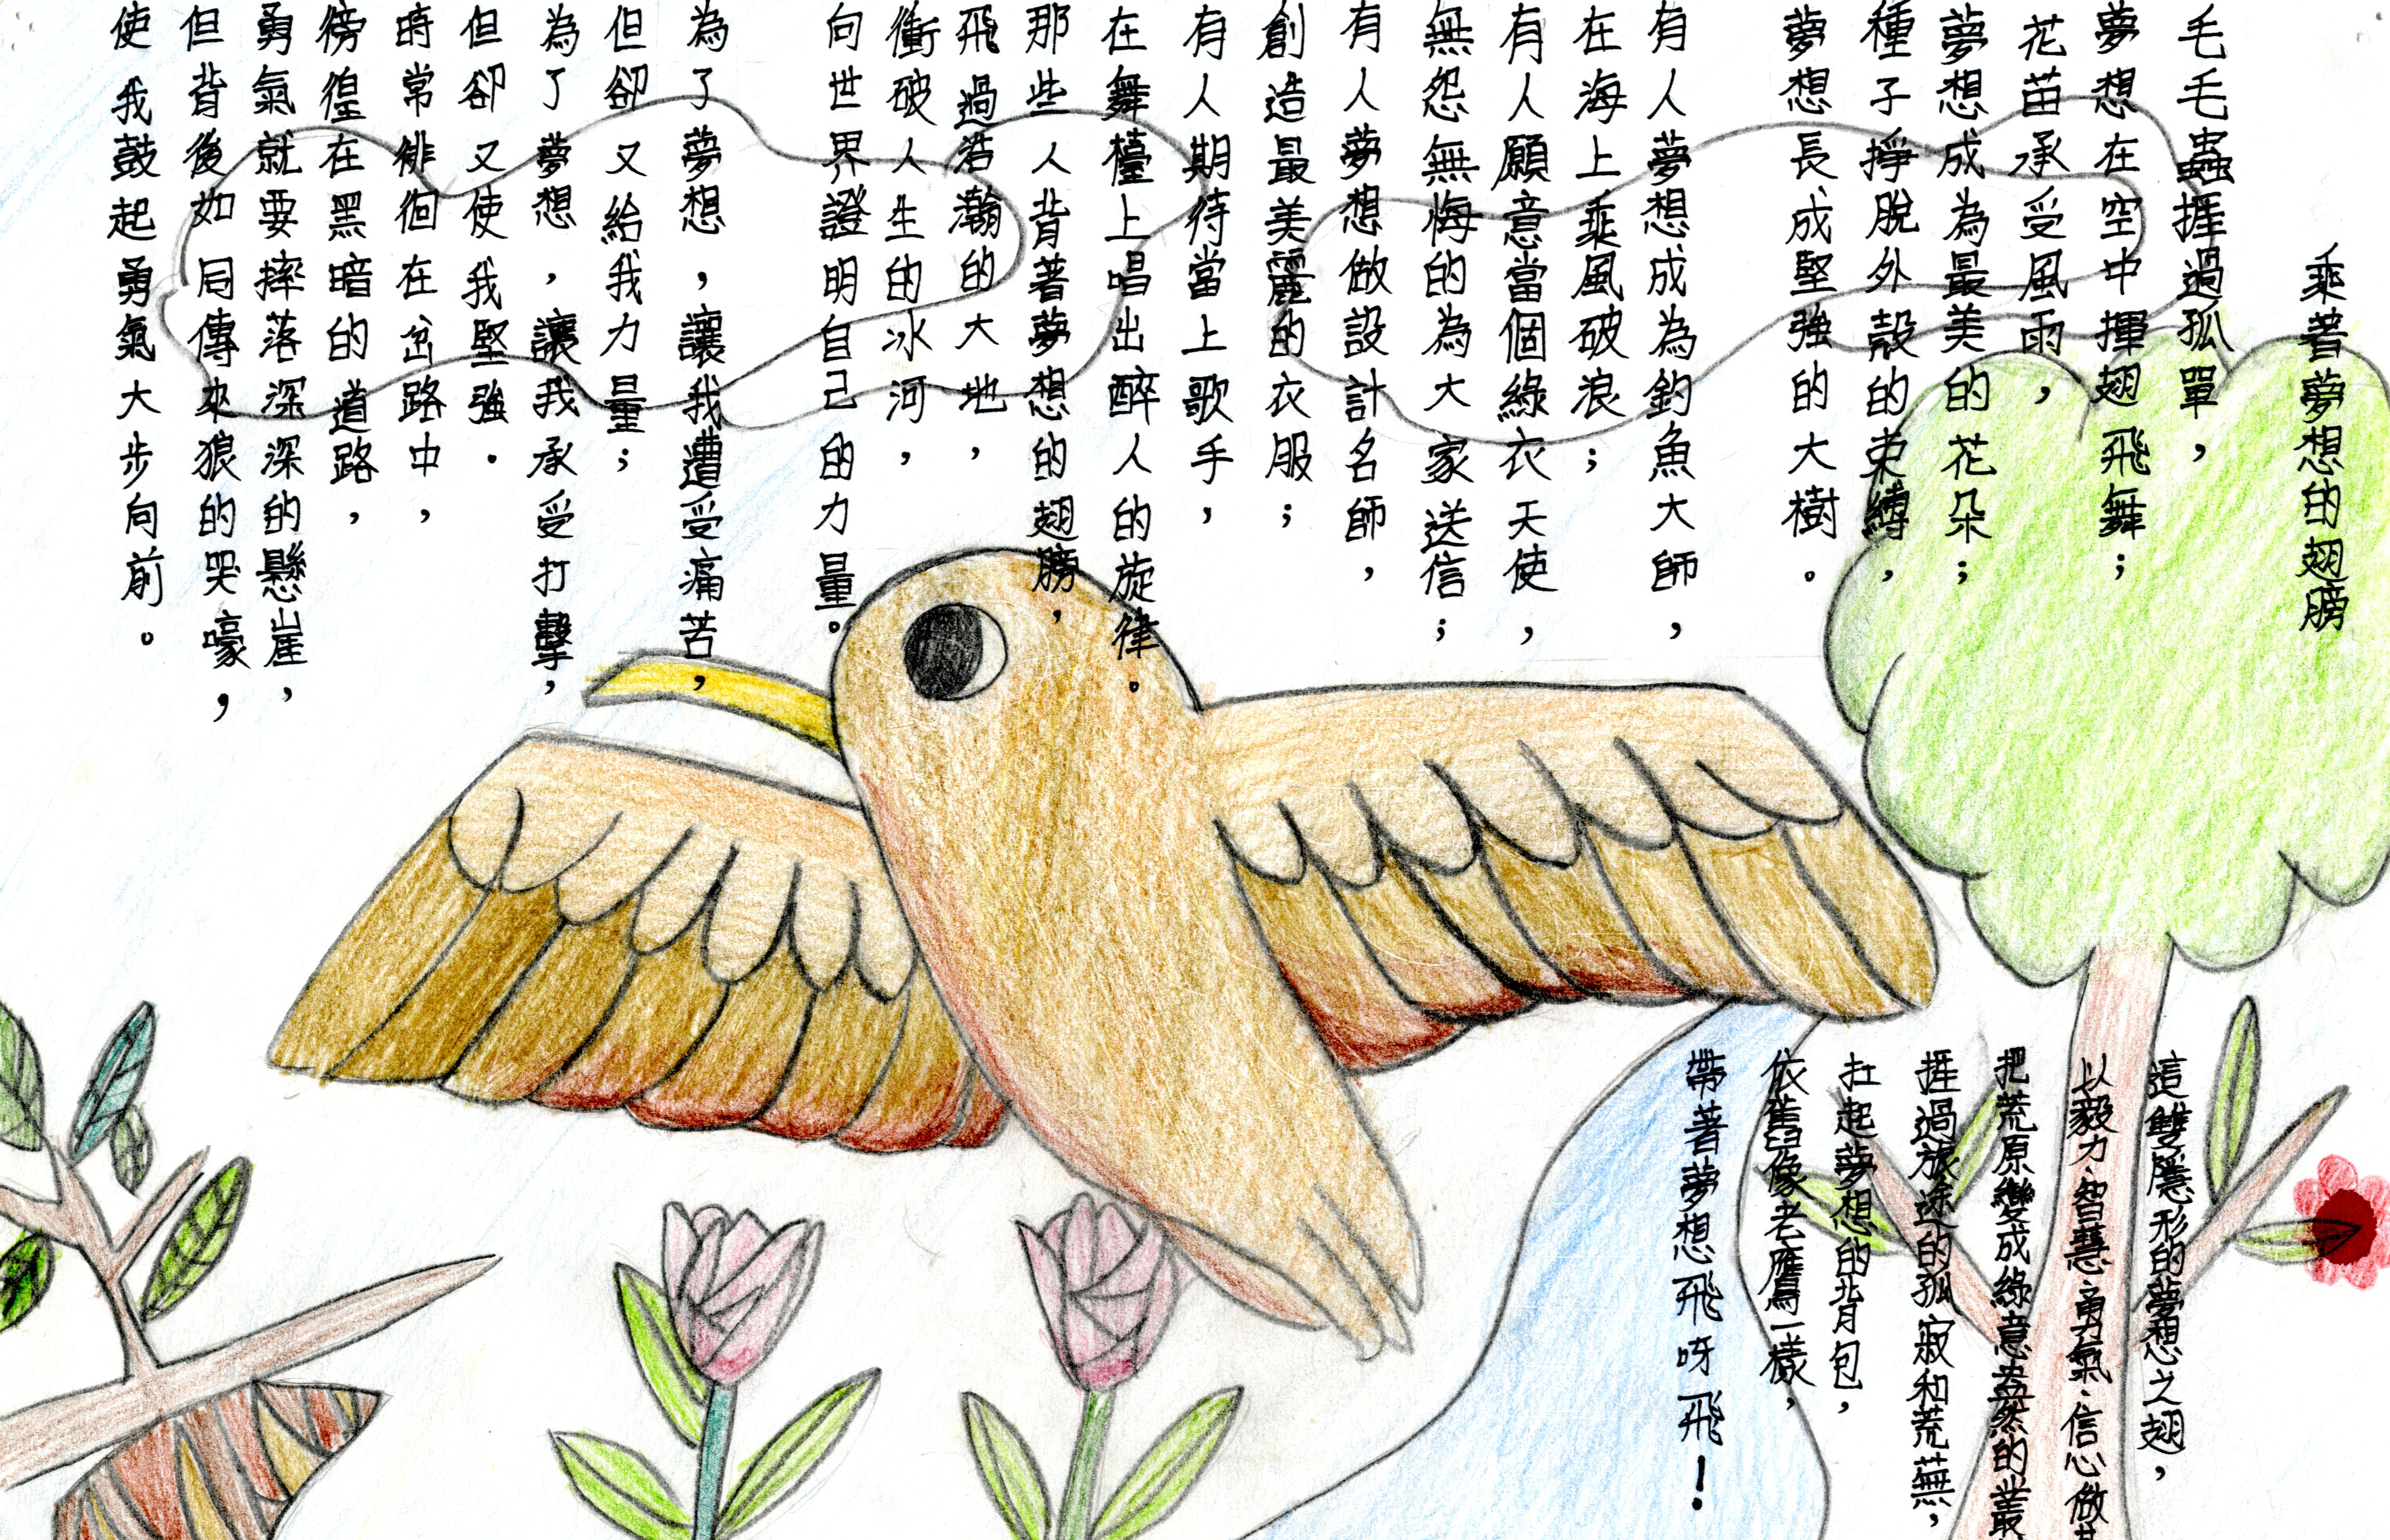 乘著夢想的翅膀
毛毛蟲捱過孤單，
夢想在空中揮翅飛舞；
花苗承受風雨，
夢想成為最美的花朵；
種子掙脫外殼的束縛，
夢想長成堅強的大樹。
有人夢想成為釣魚大師，
在海上乘風破浪；
有人願意當個綠衣天使，
無怨無悔的為大家送信；
有人夢想做設計名師，
創造最美麗的衣服；
有人期待當上歌手，
在舞檯上唱出醉人的旋律。
那些人背著夢想的翅膀，
飛過浩瀚的大地，
衝破人生的冰河，
向世界證明自己的力量。
為了夢想，讓我遭受痛苦，
但卻又給我力量；
為了夢想，讓我承受打擊，
但卻又使我堅強．
時常徘徊在岔路中，
徬徨在黑暗的道路，
勇氣就要摔落深深的懸崖，
但背後如同傳來狼的哭嚎，
使我鼓起勇氣大步向前。
這雙隱形的夢想之翅，
以毅力、智慧、勇氣、信心做
把荒原變成綠意盎然的叢
捱過旅途的孤寂和荒蕪，
扛起夢想的背包，
依舊像老鷹一樣，
帶著夢想飛呀飛！